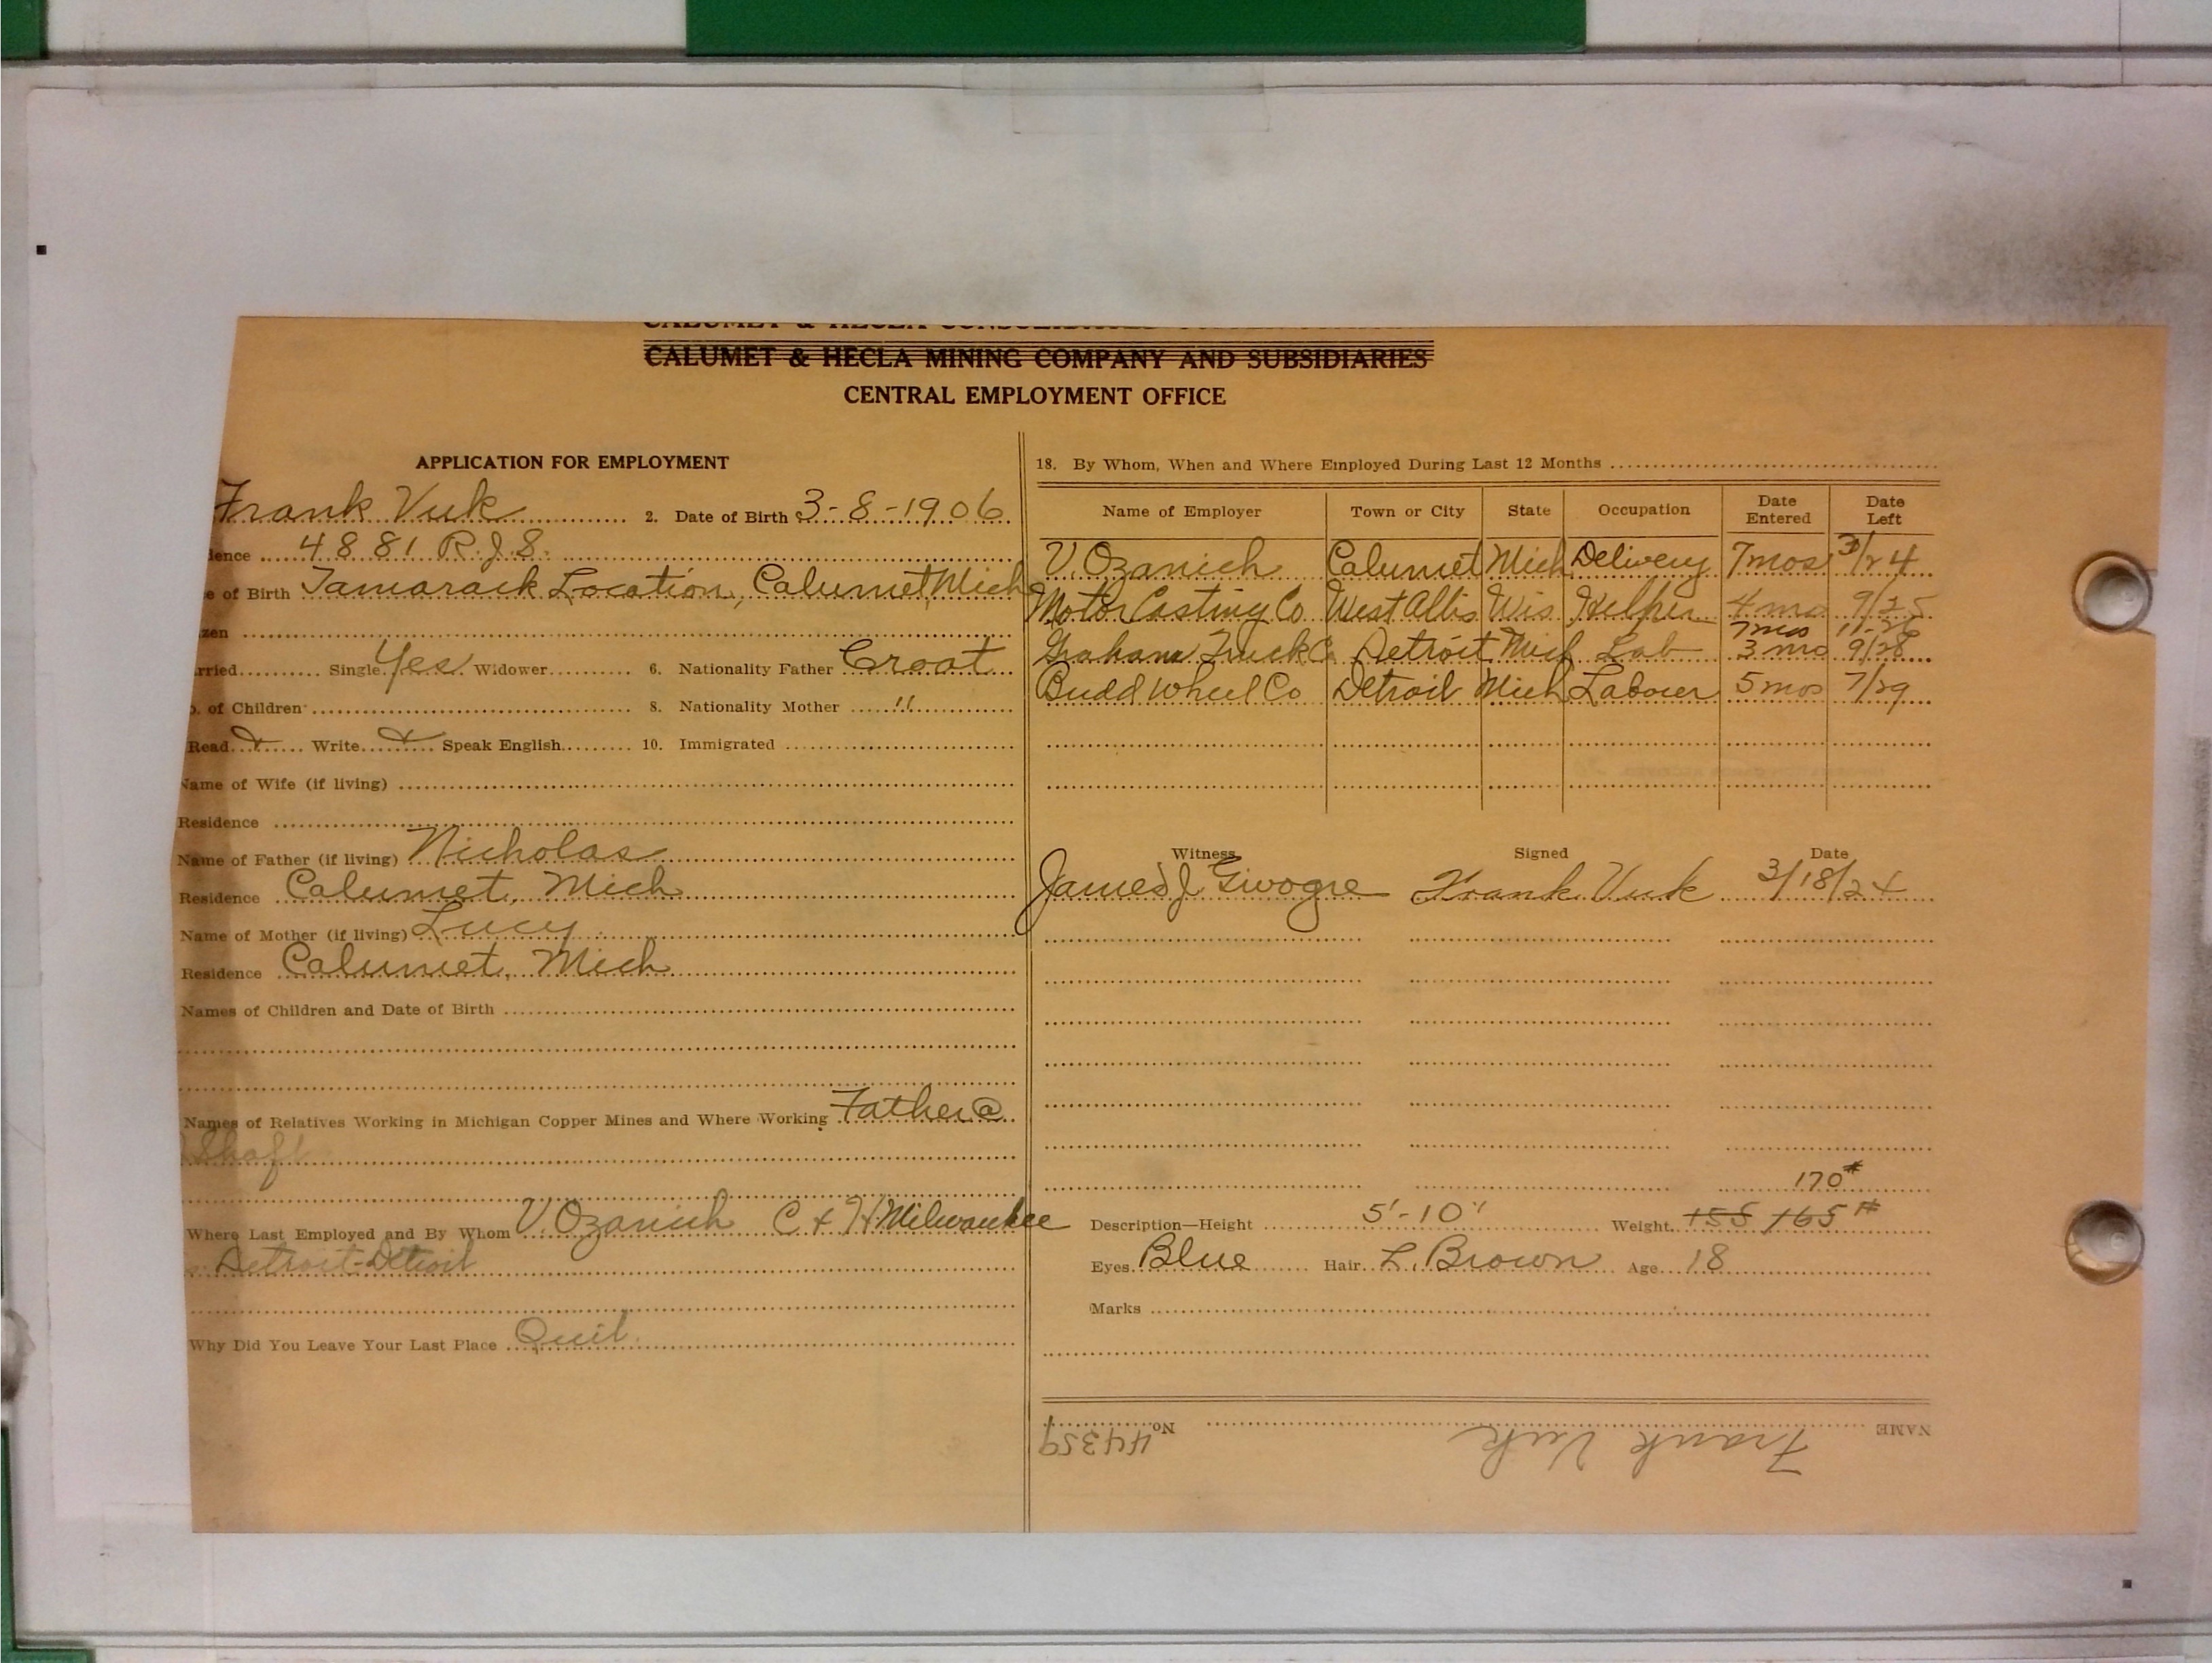 CALUMET & HECLA CONSOLIDATED
CALUMET & HECLA MINING COMPANY AND SUBSIDIARIES
CENTRAL EMPLOYMENT OFFICE
APPLICATION FOR EMPLOYMENT
Frank Vuk 2. Date of Birth 3-8-1906
dence 4881 R.J.S.
e of Birth Tamarack Location, Calumet, Mich
zen
rried Single Yes Widower 6. Nationality Father Croat
o. of Children 8. Nationality Mother "
Read Write Speak English 10. Immigrated
Name of Wife (if living)
Residence
Name of Father (if living) Nicholas
Residence Calumet, Mich
Name of Mother (if living) Lucy
Residence Calumet, Mich
Names of Children and Date of Birth
Names of Relatives Working in Michigan Copper Mines and Where Working Father @
Shaft
Where Last Employed and By Whom V. Ozanich C & H Milwaukee
Detroit-Detroit
Why Did You Leave Your Last Place Quit.
18. By Whom, When and Where Employed During Last 12 Months
Name of Employer Town or City State Occupation Date Entered Date Left
V. Ozanich Calumet Mich Delivery 7mos 3/24
Motor Casting Co West Allis Wis Helper 4 mos 9/25
7mos 11-26
Graham Truck Co Detroit Mich Lab 3 mos 9/28
Budd Wheel Co Detroit Mich Labour 5mos 7/29
Witness Signed Date
James J Givogre Frank Vuk 3/18/24
170#
Description—Height 5'-10" Weight 155 165#
Eyes Blue Hair L. Brown Age 18
Marks
NAME Frank Vuk No. 44359